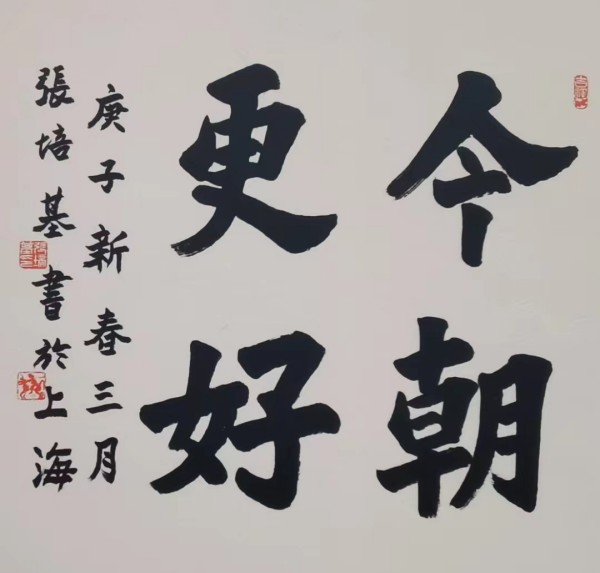 今朝
更好
庚子新春三月
張培基書於上海